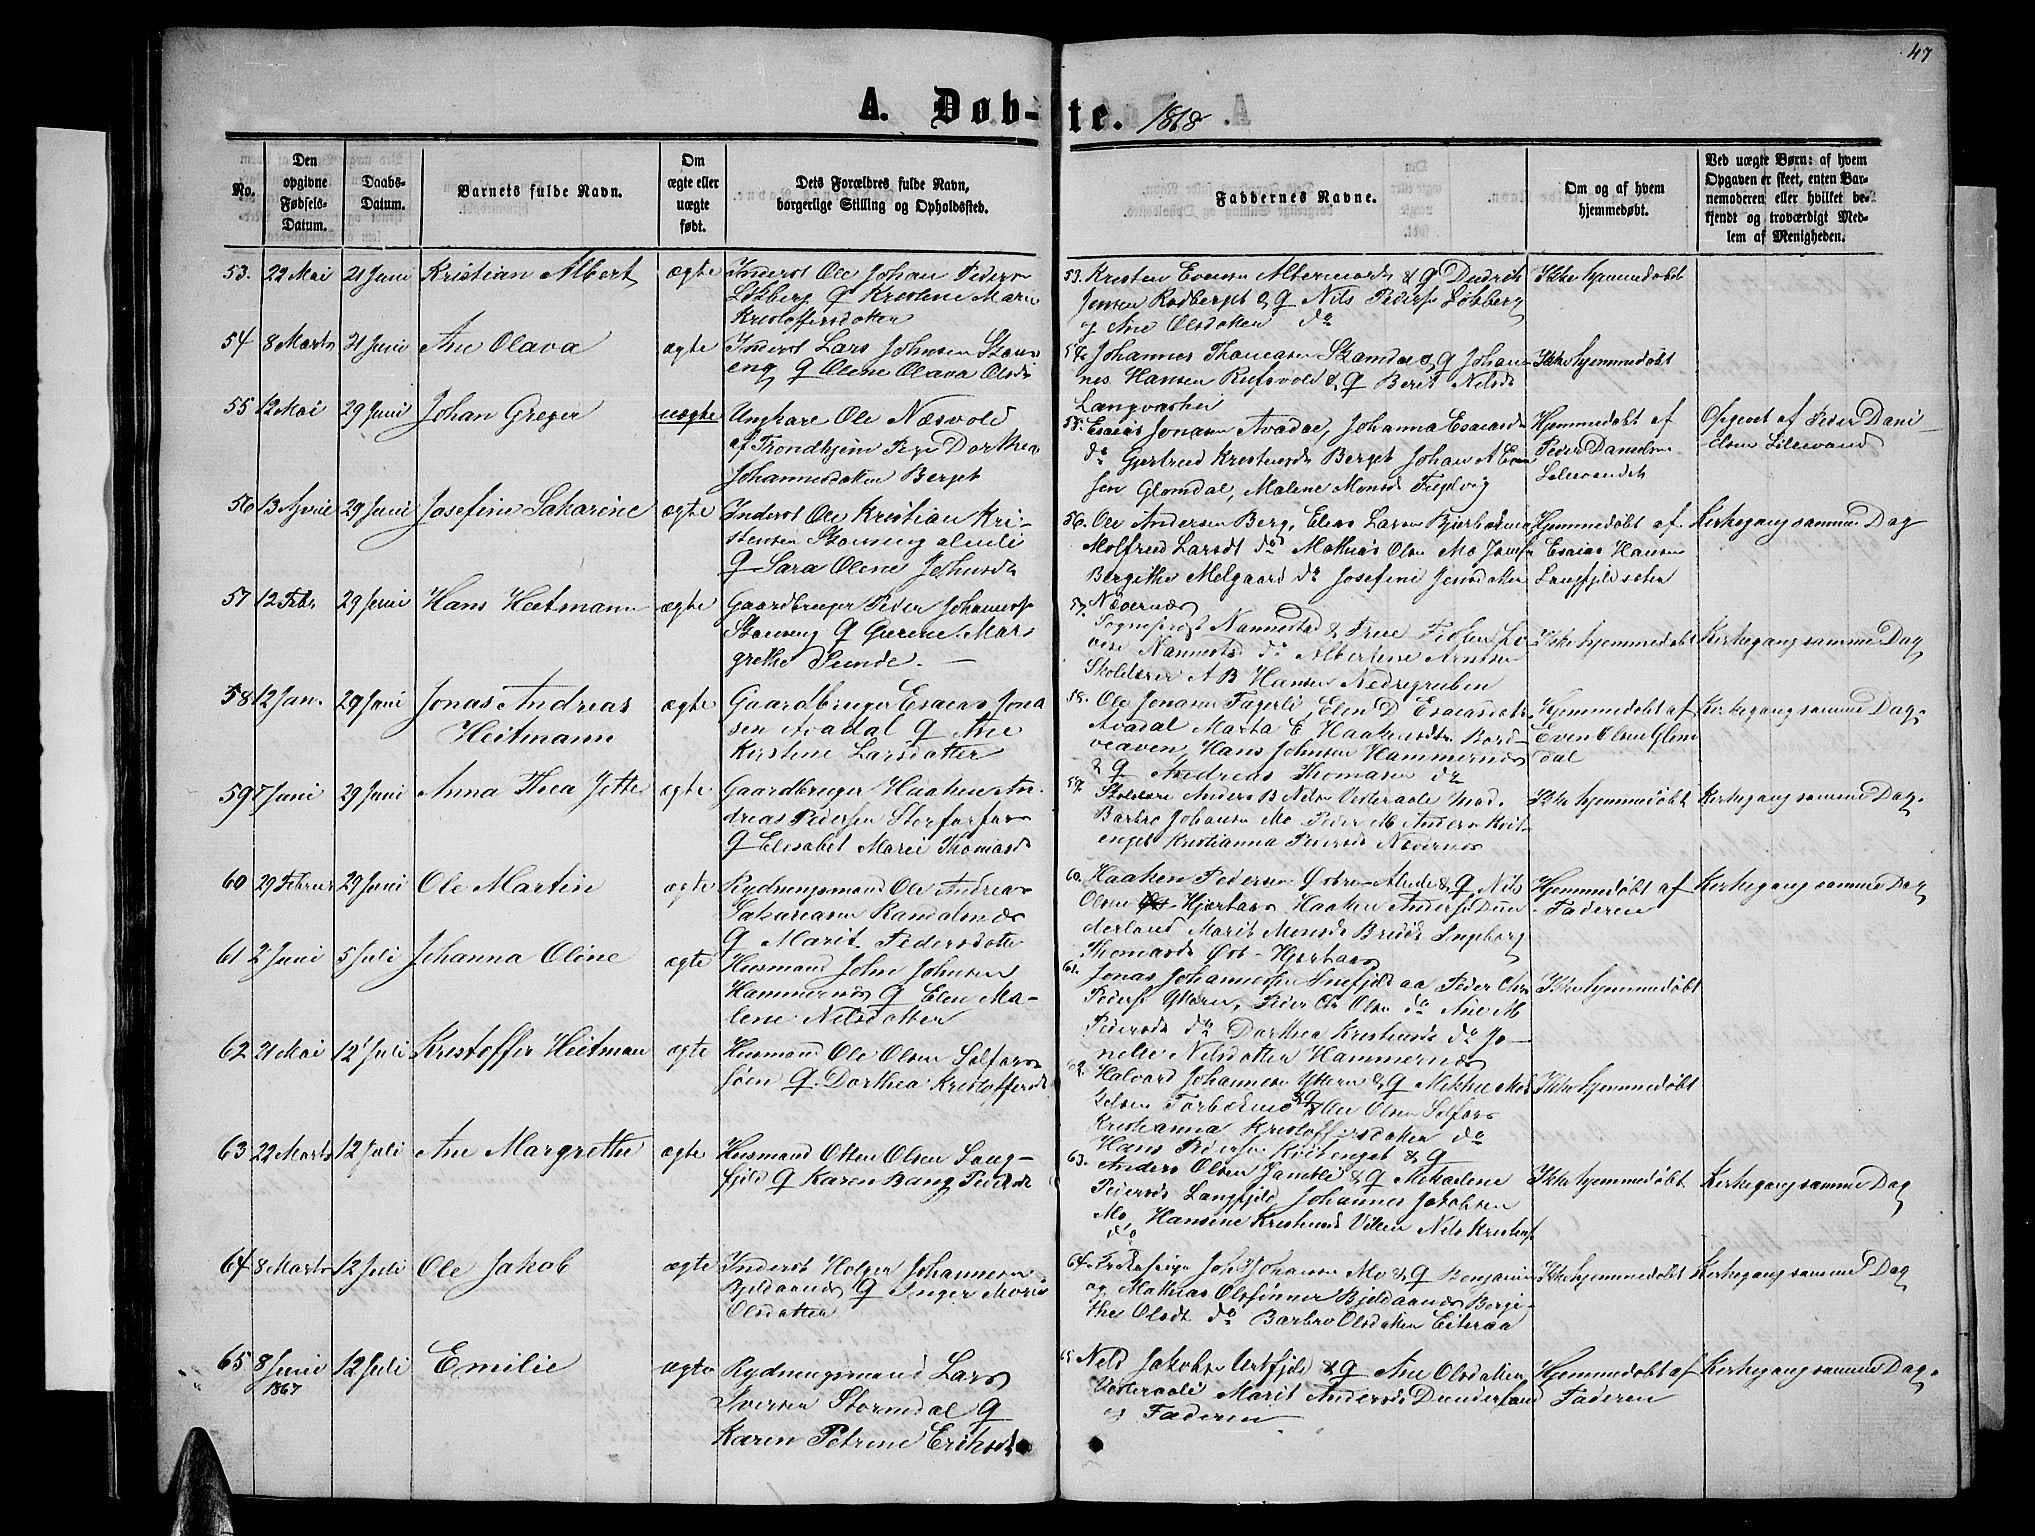 47
A. Døb-te. 1868
No.
Den opgivne Fødsels-Datum.
Daabs-Datum.
Barnets fulde Navn.
Om ægte eller uægte født.
Dets Forældres fulde Navn, borgerlige Stilling og Opholdssted.
Faddernes Navne.
Om og af hvem hjemmedøbt.
Ved uægte Børn: af hvem Opgaven er skeet, enten Barnemoderen eller hvilket bekjendt og troværdigt Medlem af Menigheden.
53. 22 Mai 21 Juni Kristian Albert ægte Inderst Ole Johan Peders
Løkberg & Kristine Marie
Kristoffersdatter
53. Kristen Evensen &
Jensen Rodberget & & Nils Peders Løkberg
og Ane Olsdatter do
Ikke hjemmedøbt
54 8 Marts 21 Juni Ane Olava ægte Inderst Lars Johnsen Skou-
eng & Oline Olava Olsdt
54. Johannes Thomasen & Johan-
nes Hansen Rufsvold & & Beret Nilsdt
Langvasheie
Ikke hjemmedøbt
55 12 Mai 29 Juni Johan Greger uægte Ungkare Ole Næsvold
af Trondhjem Pige Dorthea
Johannesdatter Berget
55. Esaias Jonasen Avadal, Johanna Esaiasd
do Gjertrud Kristensdt Berget Johan A Even
sen Glomdal, Malene Monsdt
Hjemmedøbt af
Peder Danielsen
Lillevandet
Opgivet af Peder Dani-
elsen Lillevand
56 13 29 Juni Josefine Sakarine ægte Inderst Ole Kristian Kri-
stensen Skouseng
& Sara Oline Johnsdt
56. Ole Andersen Berg, Elias Larsen
Molfred Larsdt do Mathias Olsen Mo
Bergithe Melgaard do Josefine Jensdatter
Nævernæs
Hjemmedøbt af
Esaias Hansen
Langfjeldsæter
Kirkegang samme Dag
57 12 Febr 29 Juni Hans Heitmann ægte Gaardbruger Peder Johannes
Skouseng & Gurine Mar-
grethe Sunde.
57. Sogneprest Nannestad & Frue
Nannestad do Albertine Arntsen
Skolelærer A B Hansen Nedregruben
Ikke hjemmedøbt
Kirkegang samme Dag
58 12 Jan. 29 Juni Jonas Andreas
Heitmann
ægte Gaardbruger Esaias Jona
sen Avadal & Ane
Kirstine Larsdatter
58. Ole Jonasen Fagerli, Elen D Esaiasdatr
Avadal Marta E Haakensdtr
Hans Johnsen Hammernæs
& & Andreas Thomasen do
Hjemmedøbt af
Even Olsen Glom
dal
Kirkegang samme Dag.
59 7 Juni 29 Juni Anna Thea Jette ægte Gaardbruger Haaken An-
dreas Pedersen Storforshei
& Elisabet Marie Thomasdt
59. Anders B Nelsen Vesteraale Mad.
Barbro Johansen Mo Peder M Andersen Kvit-
enget Kristianna Pedersdt Nevernæs
Ikke hjemmedøbt
Kirkegang samme Dag.
60 29 Februar 29 Juni Ole Martin ægte Rydningsmand Ole Andreas
Sakariasen Randalsnæs
& Marit Pedersdatter
60. Haaken Pedersen Østre & & Nils
Olsen Hjartaas Haaken Anders Dun
derland Marit Monsdt Ingeborg
Thomasdt Øst-Hjartaas
Hjemmedøbt af
Faderen
Kirkegang samme Dag
61 2 Juni 5 Juli Johanna Oline ægte Husmand John Johnsen
Hammernæs & Elen Ma-
lene Nilsdatter
61. Jonas Johannesen Snefjeld aa Peder Chr
Peders Ytteren, Peder Chr Olsen do Ane M
Pedersdt do Dorthea Kristiansdt do Jo-
nelie Nilsdatter Hammernæs
Ikke hjemmedøbt
62 21 Mai 12 Juli Kristoffer Heitman ægte Husmand Ole Olsen Selfors-
& Dorthea Kristoffersdt
62. Halvard Johannesen Ytteren & &
& Ole Olsen Selfors
Kristianna Kristoffersdatter do
Hans Peders Kvitenget & &
Ikke hjemmedøbt
63 22 Marts 12 Juli Ane Margrethe ægte Husmand Otter Olsen Lang-
fjeld & Karen Bang Pedersdt
63. Anders Olsen Jamtli & & Mekaline
Pedersdt Langfjeld Johannes Jakobsen
Mo, Hansine Kristensdt Nils
do
Ikke hjemmedøbt
Kirkegang samme Dag
64 8 Marts 12 Juli Ole Jakob ægte Inderst Holger Johannesen
Bjeldaanæs & Inger Marie
Olsdatter
64. Johansen Mo & & Benjamin
og Mathias Bjeldaanæs Bergi-
the Olsdt do Barbro Olsdatter Eiteraa
Ikke hjemmedøbt
Kirkegang samme Dag
65 8 Juni
1867
12 Juli Emilie ægte Rydningsmand Lars
Iversen Stormdal &
Karen Petrine Eriksdt
65 Nils Jakobs Urtfjeld & & Ane Olsdatter
Vesteraali Marit Andersdt Dunderland
og Faderen
Hjemmedøbt af
Faderen
Kirkegang samme Dag.